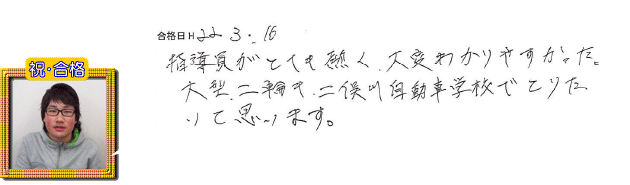 合格日H 22.3.16
指導員がとても熱く、大変わかりやすかった。
大型二輪も、二俣川自動車学校でとりた
いと思います。
祝・合格